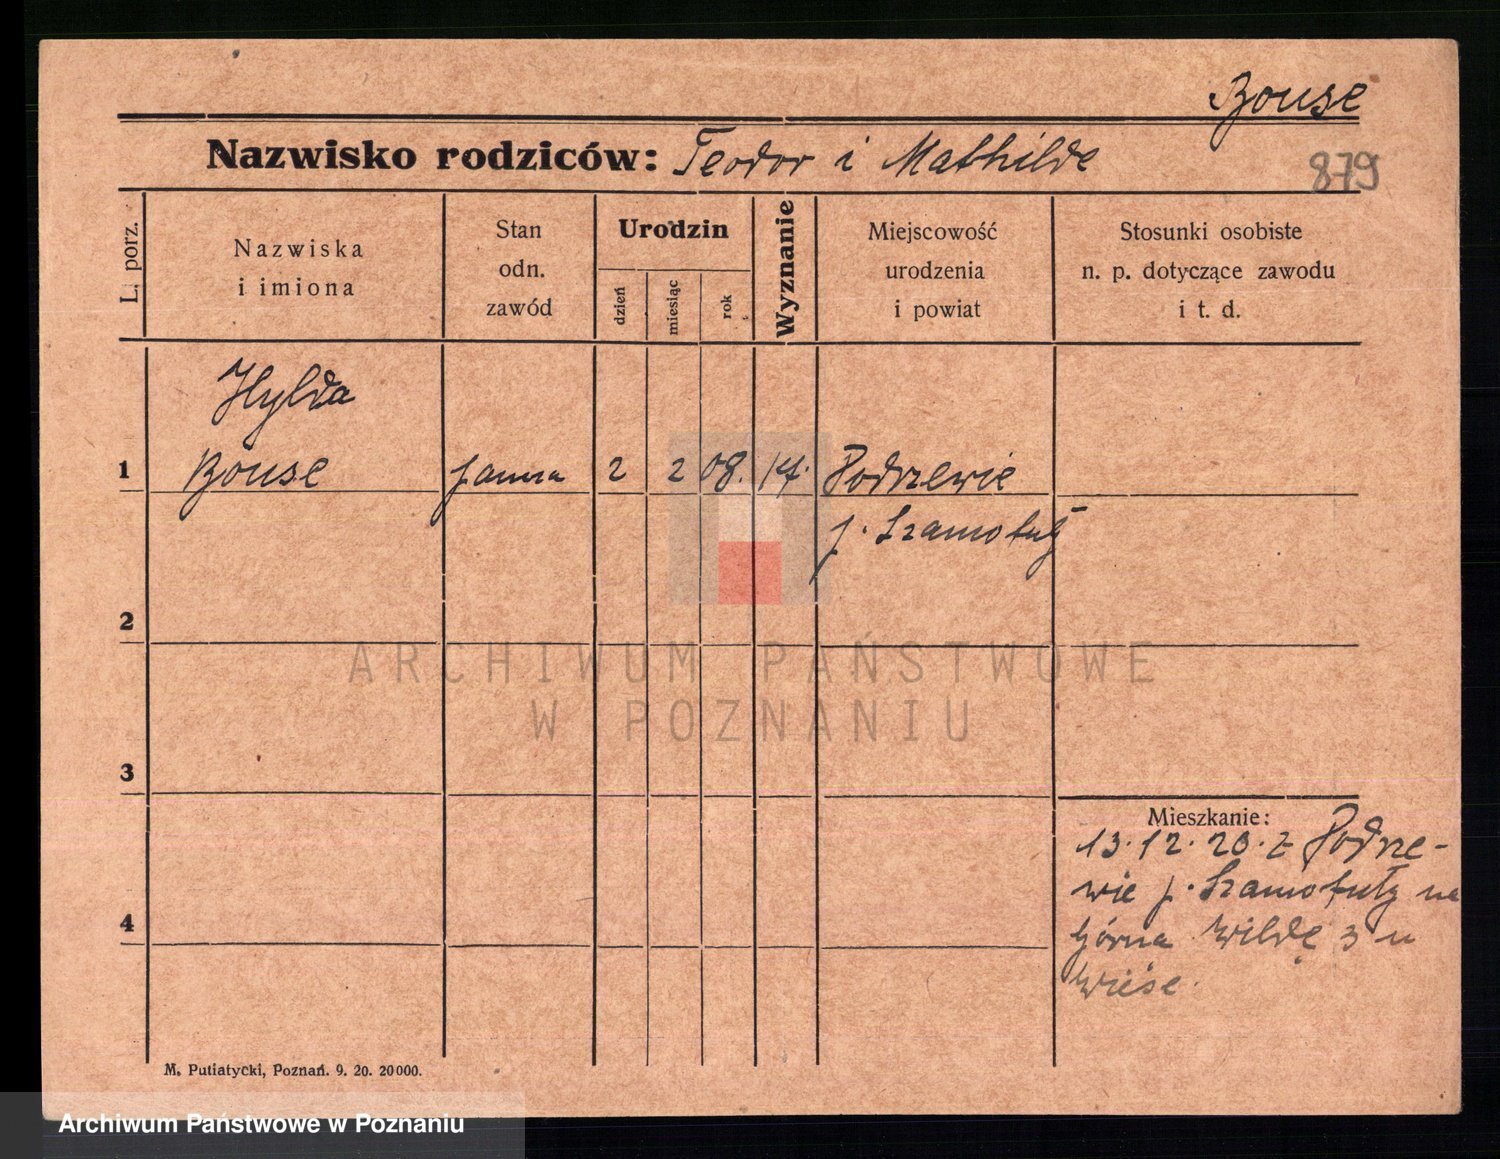 Bouse
Nazwisko rodziców: Teodor i Mathilde
879
L. porz.
Nazwiska
i imiona
Stan
odn.
zawód
Urodzin
dzień
miesiąc
rok
Wyznanie
Miejscowość
urodzenia
i powiat
Stosunki osobiste
n. p. dotyczące zawodu
i t. d.
Hylda
1 Bouse panna 2 2 08. Podrzewie
p. Szamotuły
2
3
4
ARCHIWUM PAŃSTWOWE
W POZNANIU
Mieszkanie:
13.12.20. z Podrze-
wie p. Szamotuły na
Górna Wildę 3 u
Wiese.
M. Putiatycki, Poznań. 9. 20. 20000.
Archiwum Państwowe w Poznaniu